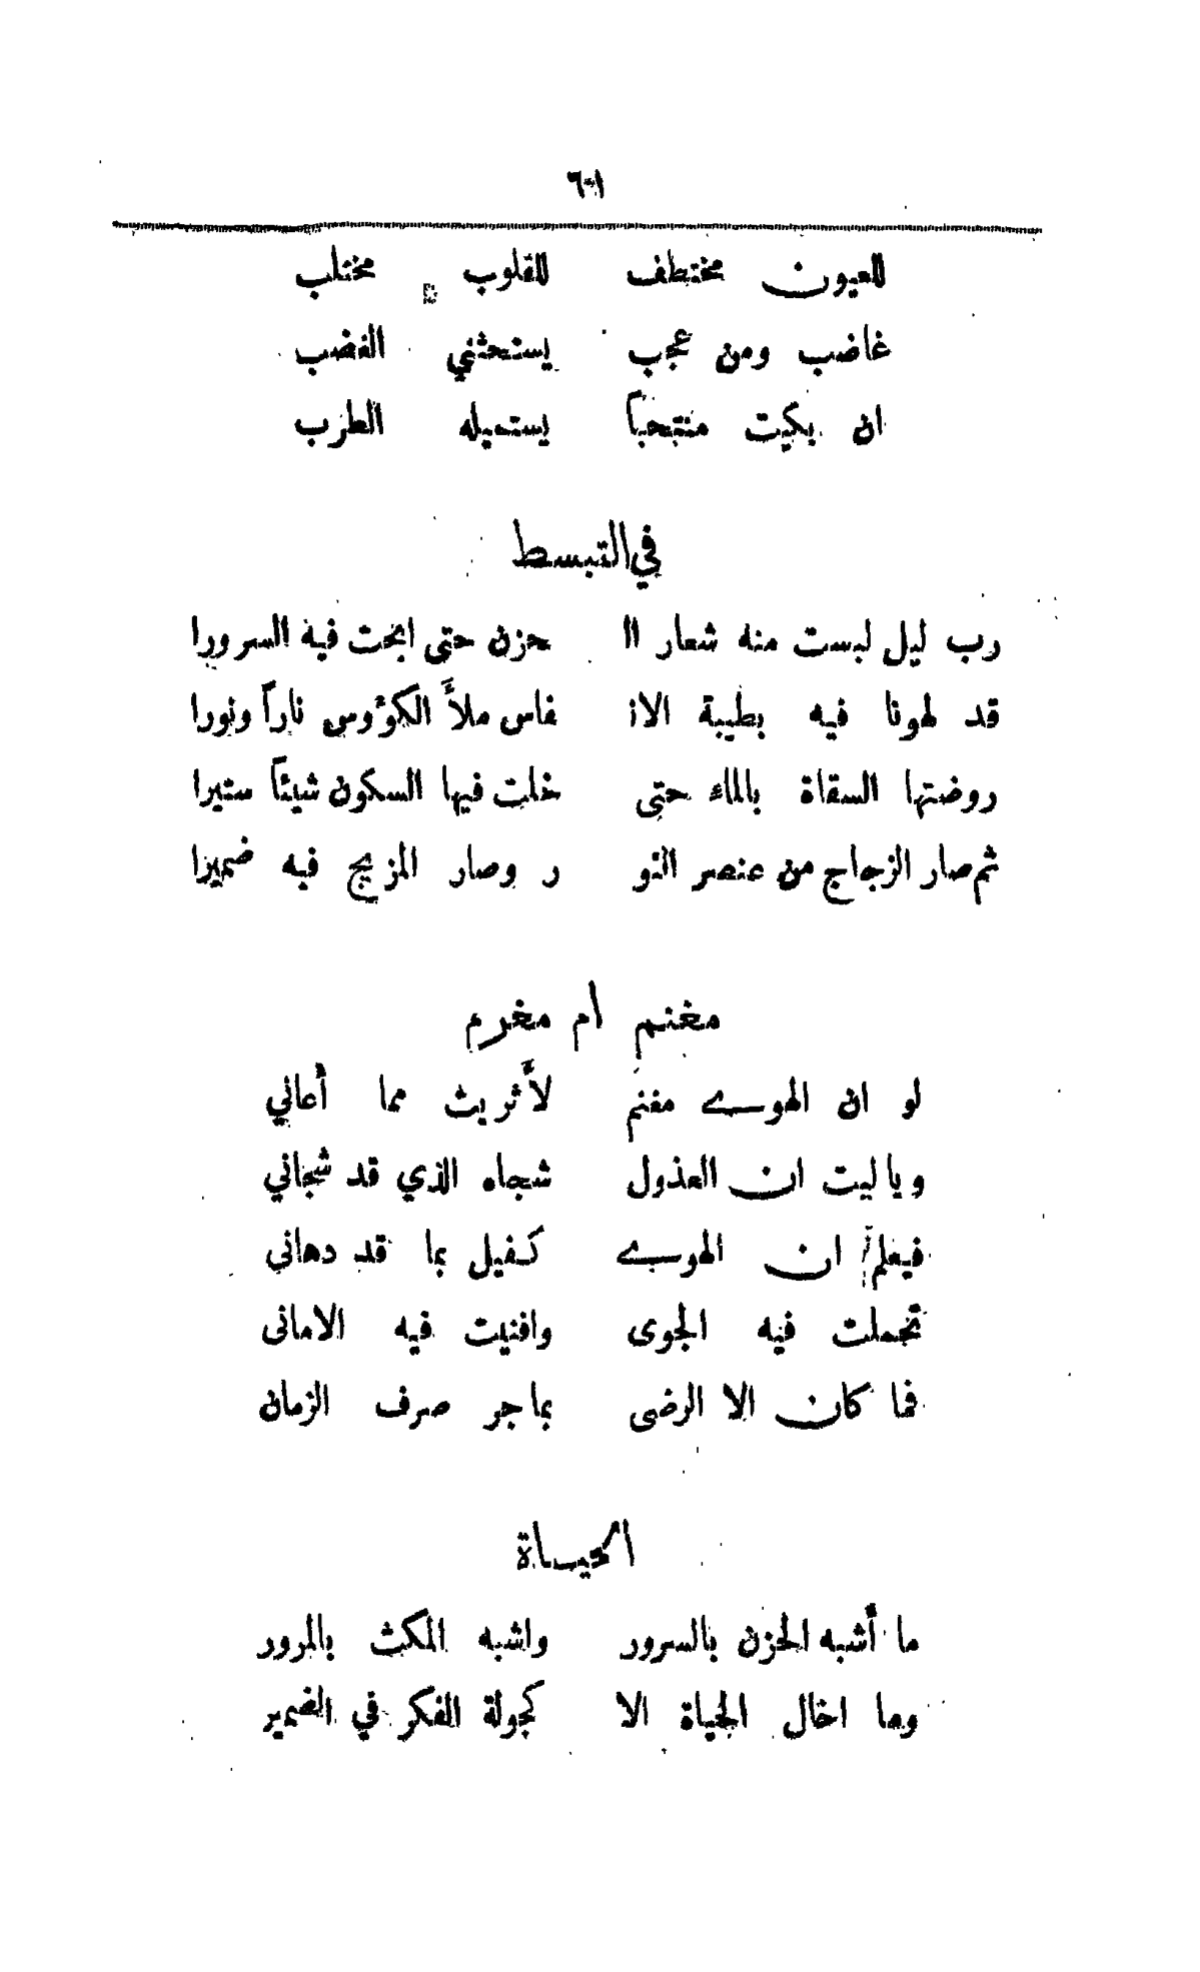 ١٠٦
للعيون مختطف للقلوب مختلب
غاضب ومن عجب يستحثني الغضب
ان بكيت منتحباً يستميله الطرب
في التبسط
رب ليل لبست منه شعار ال حزن حتى ابحت فيه السرورا
قد لهونا فيه بطيبة الان فاس ملأَ الكؤوس ناراً ونورا
روضتها السقاة بالماء حتى خلت فيها السكون شيئاً ستيرا
ثم صار الزجاج من عنصر النو ر وصار المزيج فيه ضميرا
مغنم أم مغرم
لو ان الهوى مغنم لأَثريت مما أعاني
وياليت ان العذول شجاه الذي قد شجاني
فيعلم ان الهوى كفيل بما قد دهاني
تحملت فيه الجوى وافنيت فيه الامانى
فما كان الا الرضى بما جر صرف الزمان
الحياة
ما أشبه الحزن بالسرور واشبه المكث بالمرور
وما اخال الحياة الا كجولة الفكر في الضمير